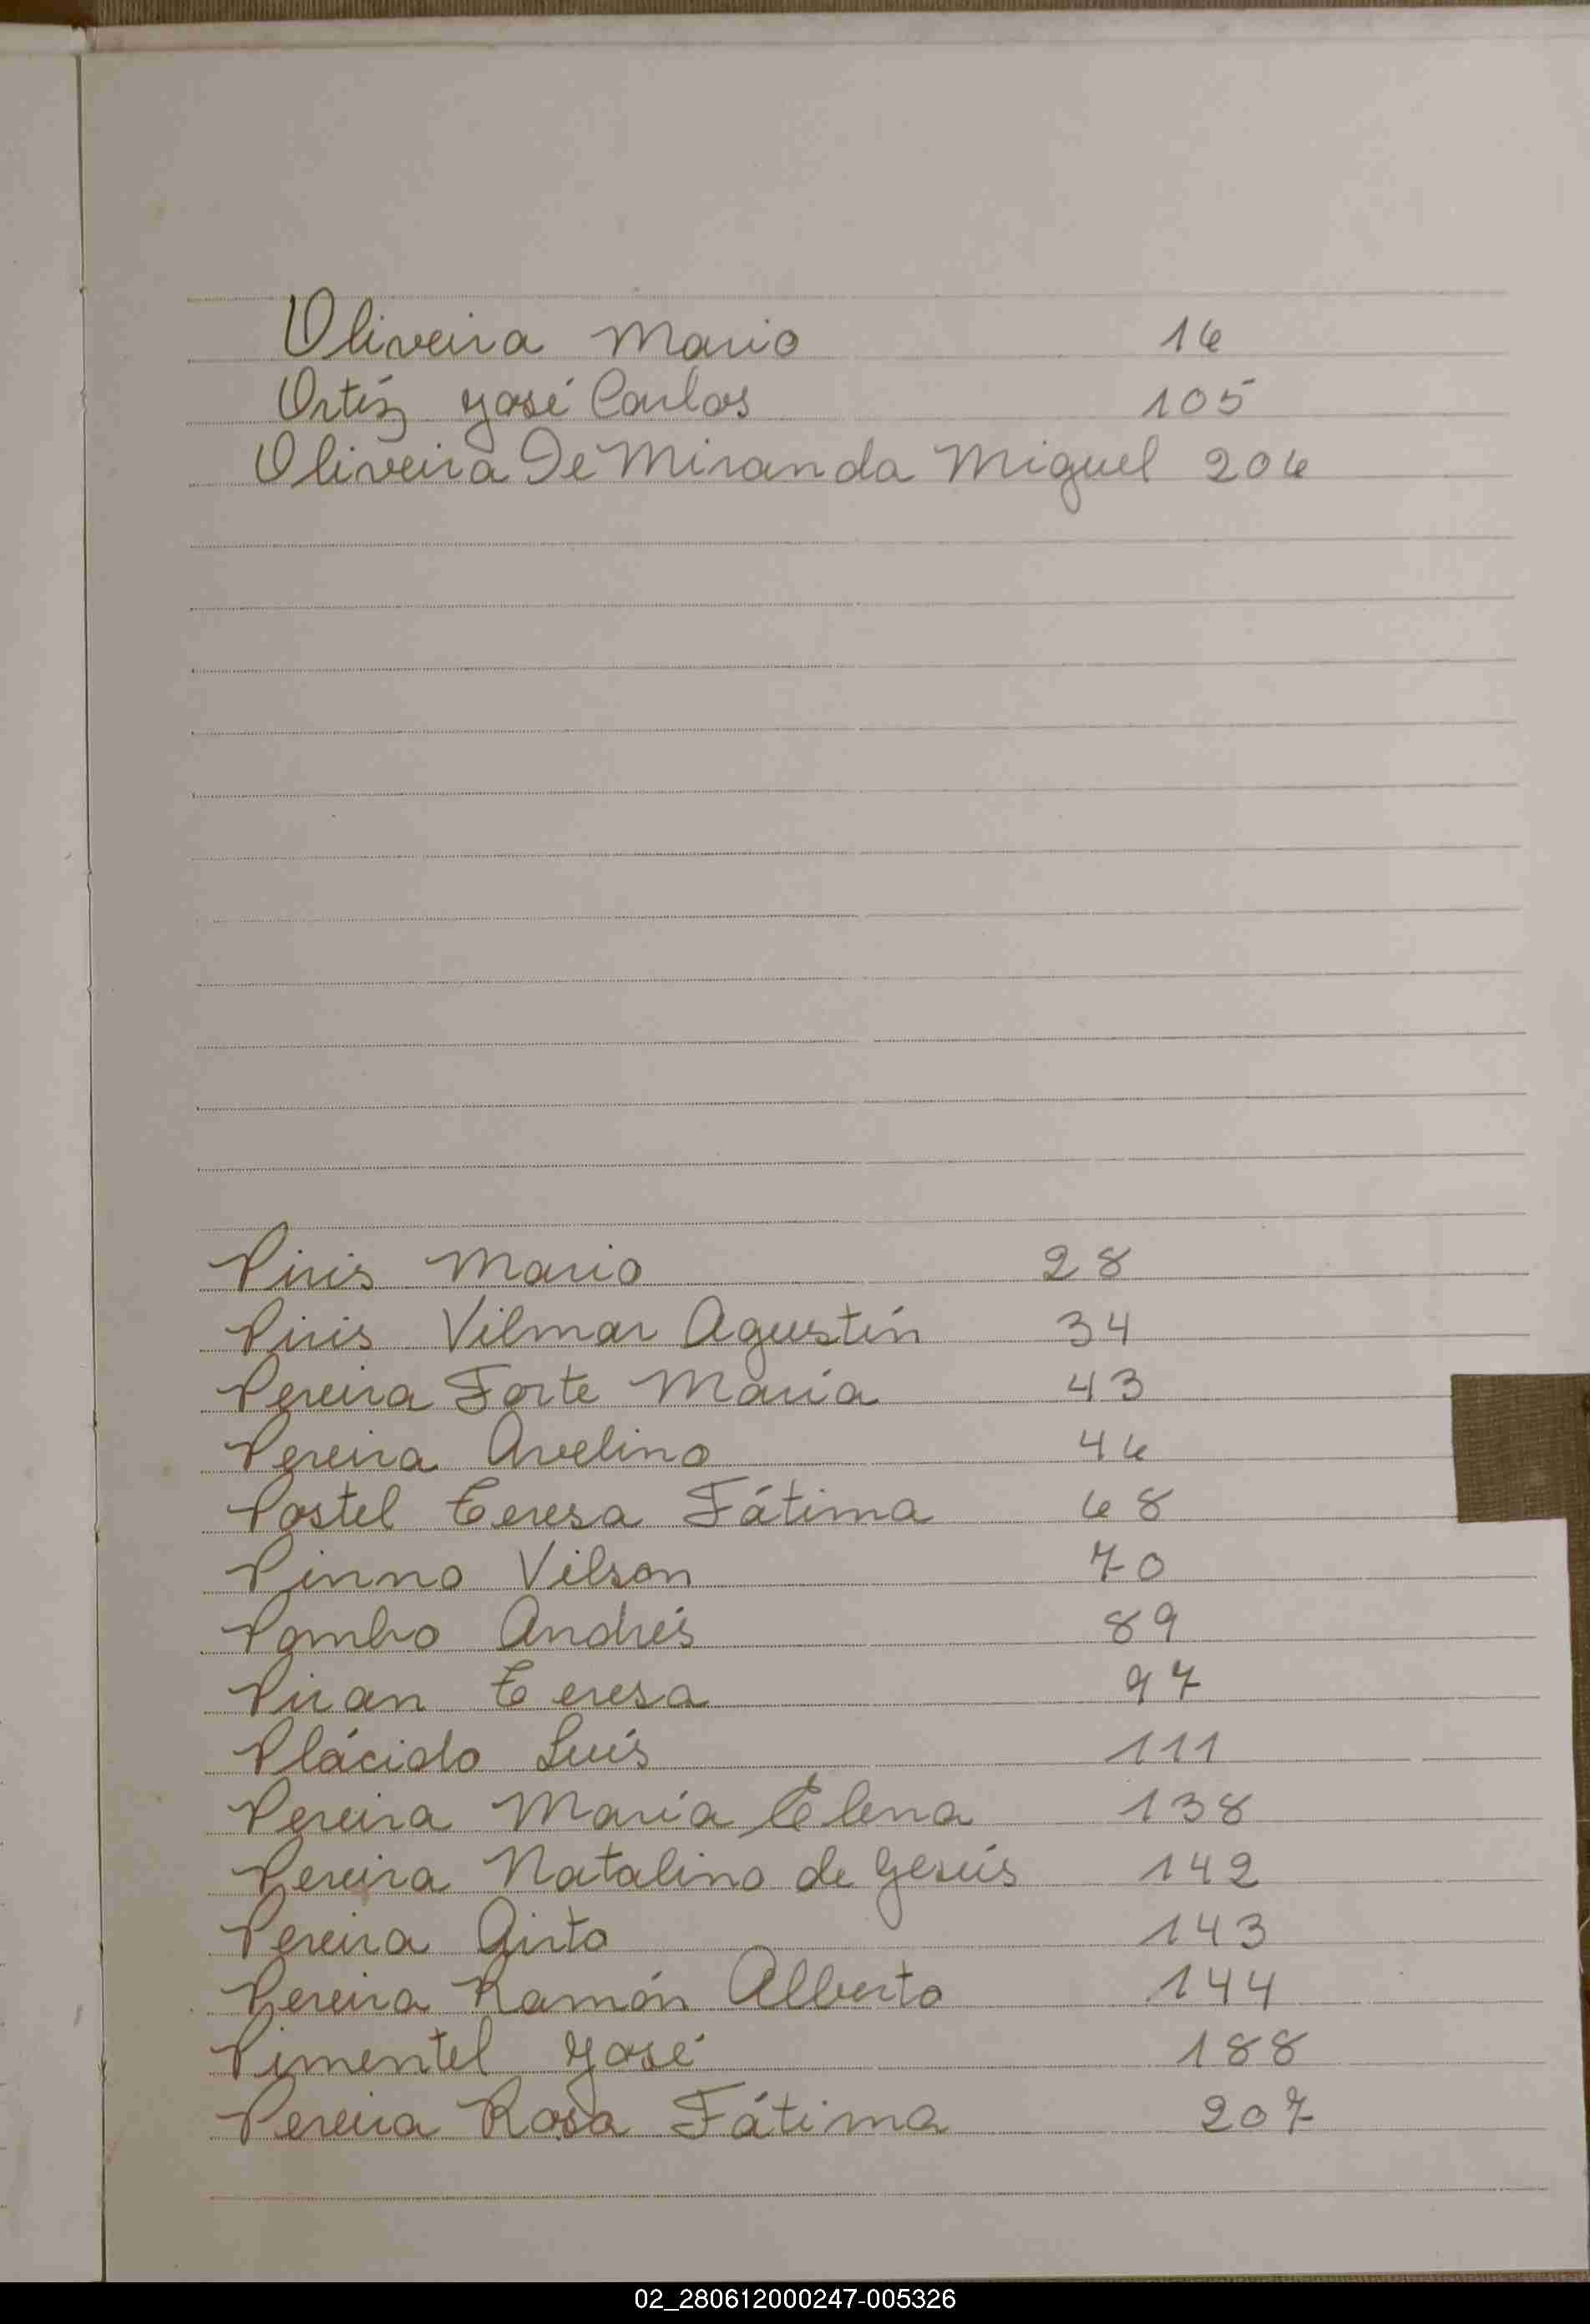 Oliveira Mario 16
Ortíz José Carlos 105
Oliveira De Miranda Miguel 206
Piris Mario 28
Piris Vilmar Agustín 34
Pereira Forte María 43
Pereira Avelino 46
Postel Teresa Fátima 68
Pinno Vilson 70
Pombo Andrés 89
Piran Teresa 97
Plácido Luís 111
Pereira María Elena 138
Pereira Natalino de Jesús 142
Pereira Airto 143
Pereira Ramón Alberto 144
Pimentel José 188
Pereira Rosa Fátima 207
02_280612000247-005326